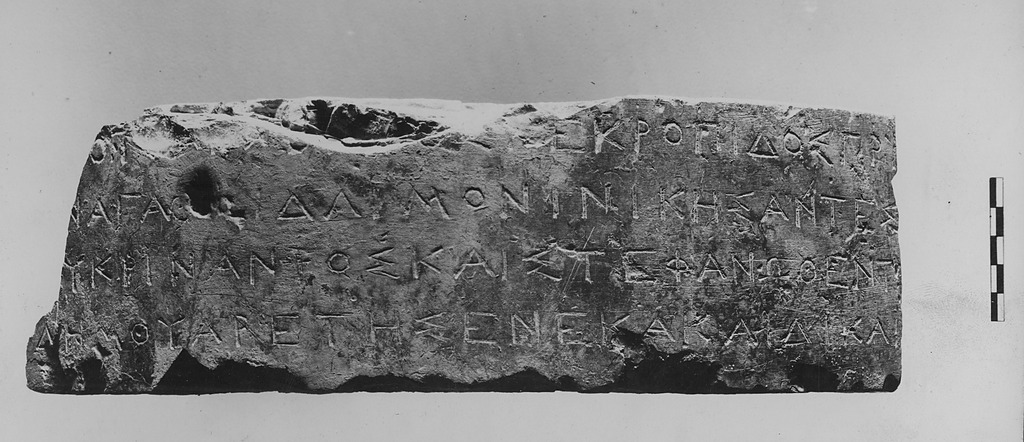 ΟΙ ΕΚΡΟΠΙΔΟΣΠΡ
ΝΑΓΑΘ ΥΔΑΙΜΩΝΙΝΙΚΗΣΑΝΤΕΣ
ΥΚΡΙΝΑΝΤΟΣΚΑΙΣΤΕΦΑΝΩΘΕΝΤ
ΔΗΜΟΥΑΡΕΤΗΣΕΝΕΚΑΚΑΙΔΙΚΑ